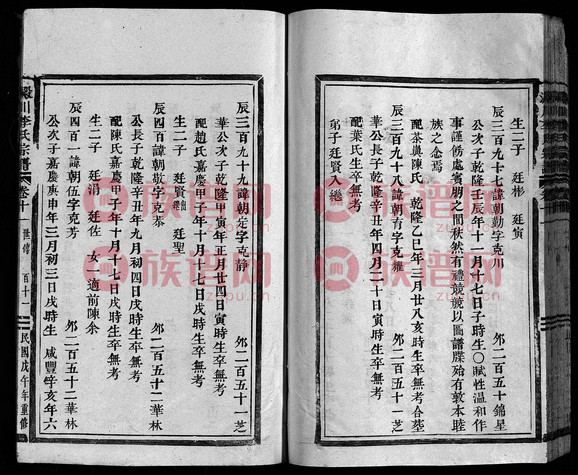 生二子 廷彬 廷寅
辰三百九十七諱朝勤字克川 外二百五十錦星
公次子乾隆壬辰年十一月十七日子時生〇賦性温和作
事謹慤處賓朋之間秩然有禮兢兢以圖譜牒殆有敦本睦
族之念焉
配茶典陳氏乾隆乙巳年三月廿八亥時生卒無考合塟
辰三百九十八諱朝育字克耀 外二百五十一芝
公長子乾隆辛丑年四月二十日寅時生卒無考
配葉氏生卒無考
弟子廷賢入繼
辰三百九十九諱朝定字克静 外二百五十一芝
華公次子乾隆甲寅年正月廿四日寅時生卒無考
配趙氏嘉慶甲子年十月十七日戌時生卒無考
生二子 廷賢出繼 廷聖
辰四百諱朝敬字克泰 外二百五十二華林
公長子乾隆辛丑年九月初四日戌時生卒無考
配陳氏嘉慶甲子年十月十七日戌時生卒無考
生二子 廷涓 廷佐 女一適前陳余
辰四百一諱朝伍字克芳 外二百五十二華林
公次子嘉慶庚申年三月初三日戌時生 咸豐辛亥年六
澱川李氏宗譜 卷十一 世傳 百十一 民國戊午年重修
族谱网
zupu.cn